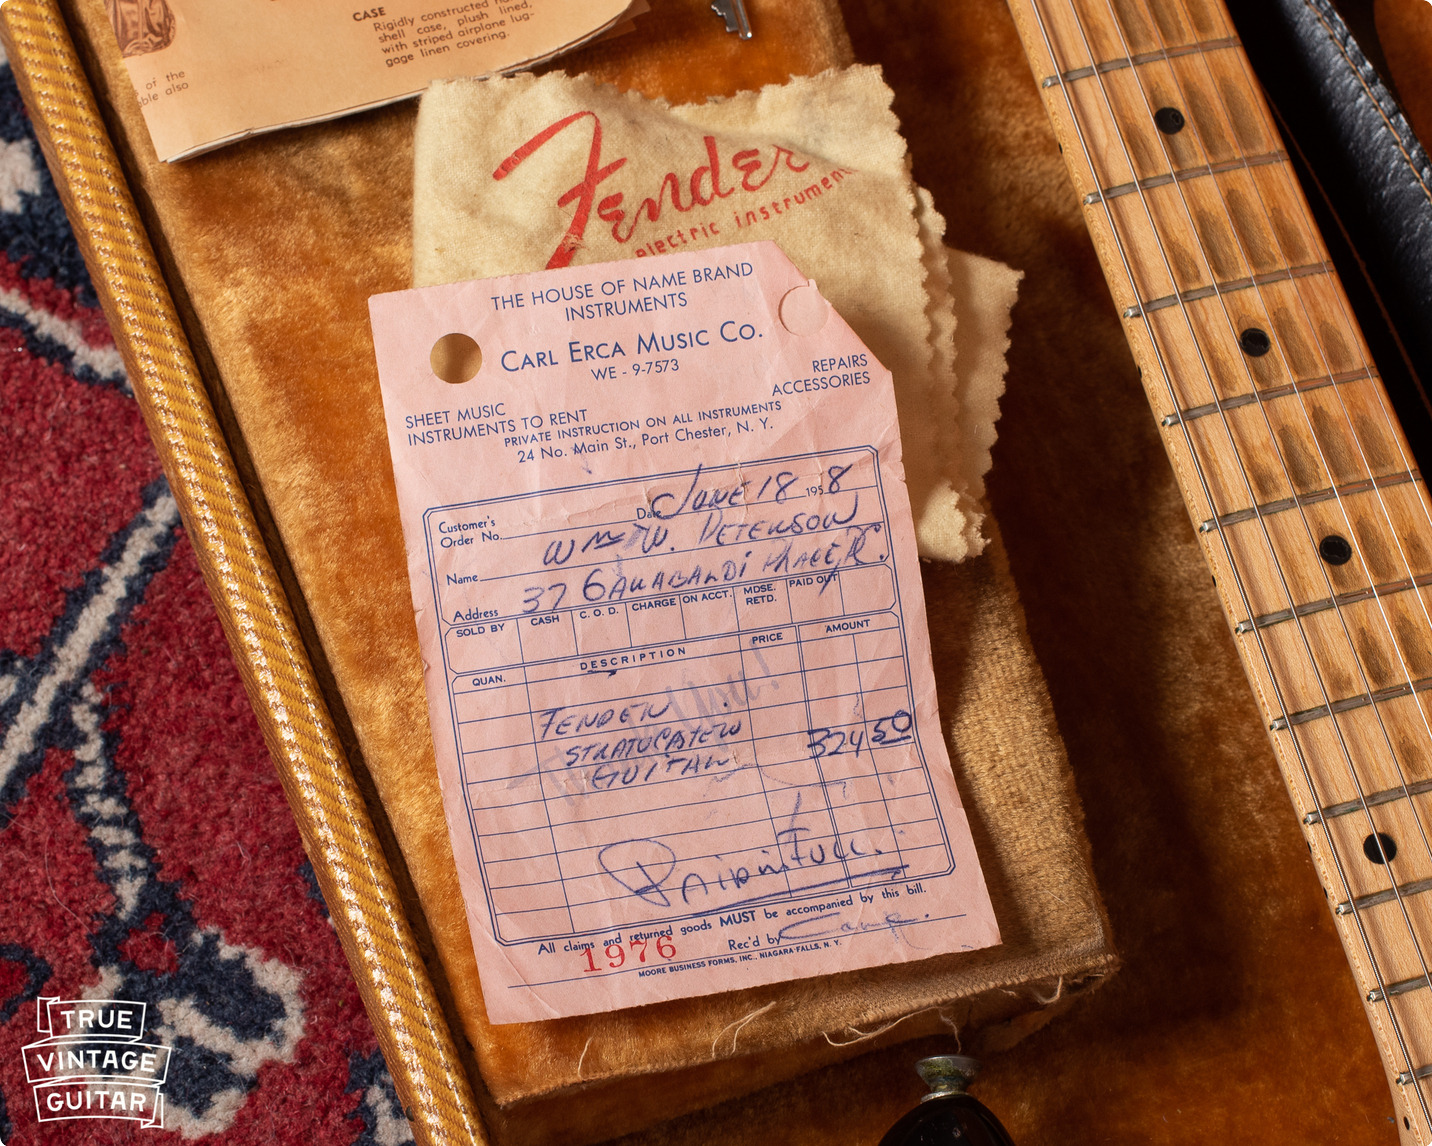 CASE
Rigidly constructed
shell case, plush lined,
with striped airplane lug-
gage linen covering.
of the
ble also
Fender
electric instrument
THE HOUSE OF NAME BRAND
INSTRUMENTS
CARL ERCA MUSIC CO.
WE - 9-7573
REPAIRS
ACCESSORIES
SHEET MUSIC
INSTRUMENTS TO RENT
PRIVATE INSTRUCTION ON ALL INSTRUMENTS
24 No. Main St., Port Chester, N. Y.
Customer's
Order No.
Date JUNE 18 1958
Name WM W. PETERSON
Address 37 GARABALDI PLACE,
SOLD BY CASH C. O. D. CHARGE ON ACCT. MDSE. RETD. PAID OUT
QUAN. DESCRIPTION PRICE AMOUNT
Thank You!
FENDER
STRATOCASTER 324 50
GUITAR
PAID IN FULL.
All claims and returned goods MUST be accompanied by this bill.
1976 Rec'd by
MOORE BUSINESS FORMS, INC., NIAGARA FALLS, N. Y.
TRUE
VINTAGE
GUITAR